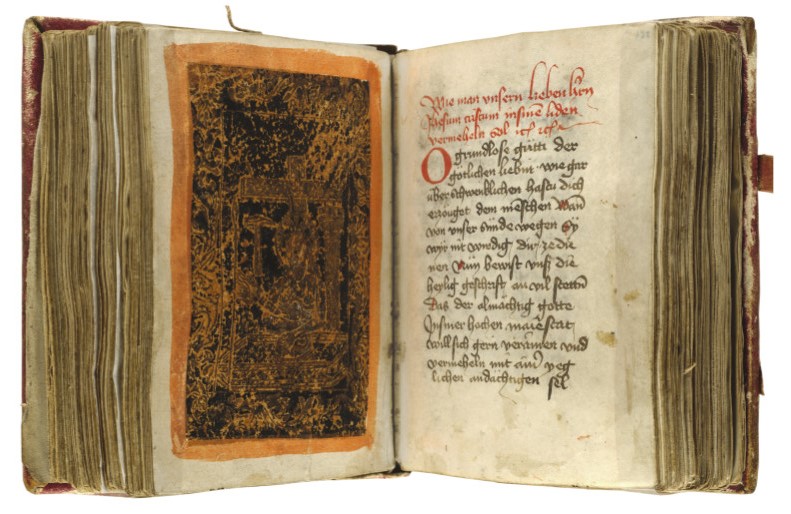 Wie man unsern lieben hrn
Jhesum cristum in sinē liden
vermeheln sol ich ich
O grundlose gütti der
götlichen liebin wie gar
über schwenklichen hastu dich
erzöuget dem mēschen wan̄
von unser sünde wegen Sÿ
wÿr nit wirdig dir ze die
nen Nun bewist unß die
heylig geschrift an vil stettn̄
Das der almächtig gotte
In siner hochen maiestat
Will sich gern verainen und
vermeheln mit ainr yeg
lichen andächtigen sel